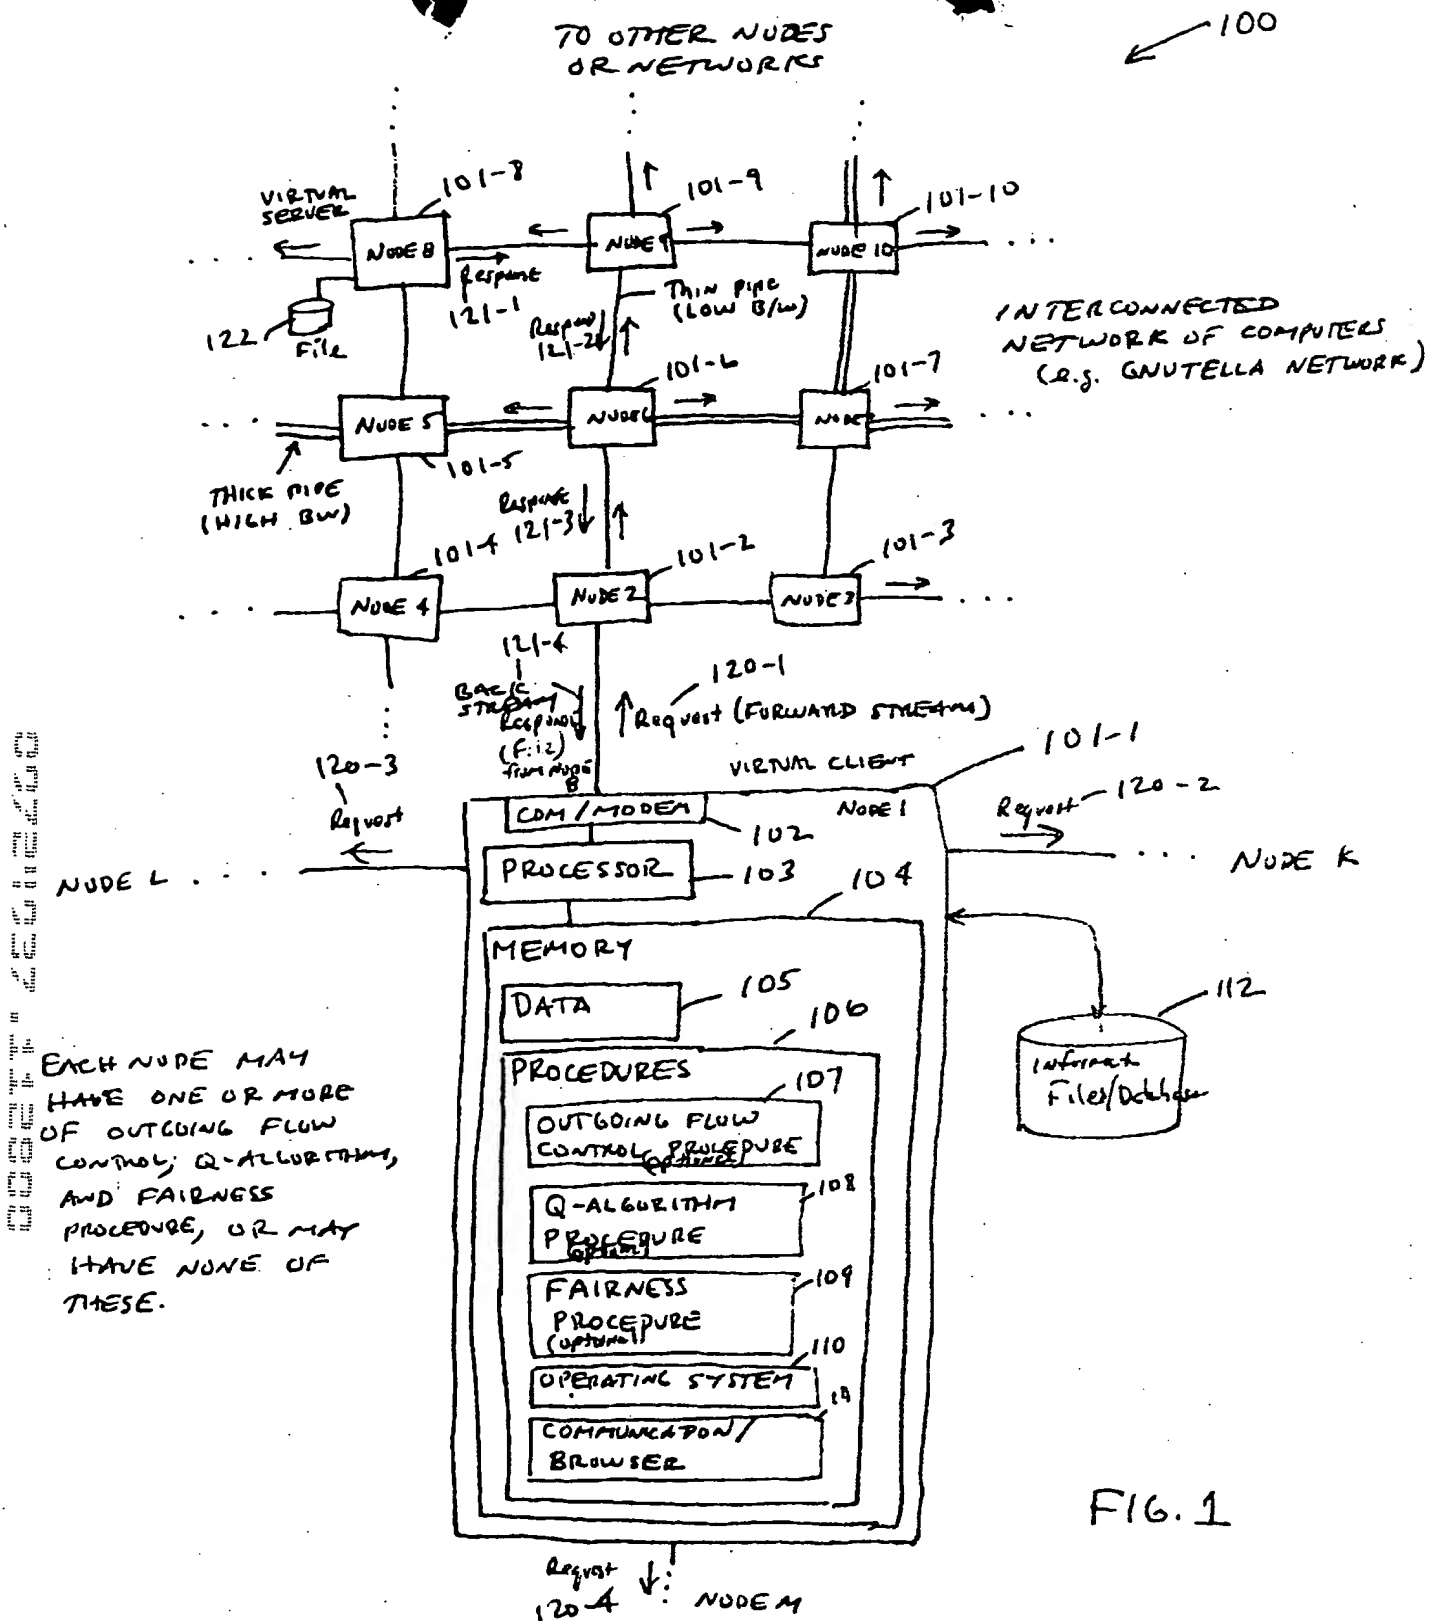 TO OTHER NODES
OR NETWORKS
100
VIRTUAL
SERVER
101-8
101-9
101-10
NODE 8
NODE 9
NODE 10
Response
121-1
THIN PIPE
(LOW B/W)
122
File
Respons
121-2
INTERCONNECTED
NETWORK OF COMPUTERS
(e.g. GNUTELLA NETWORK)
101-6
101-7
NODE 5
NODE 6
NODE
101-5
THICK PIPE
(HIGH BW)
Response
121-3
101-4
101-2
101-3
NODE 4
NODE 2
NODE 3
121-4
BACK
STREAM
Response
(File)
from NODE
8
120-1
Request (FORWARD STREAM)
120-3
Request
VIRTUAL CLIENT
101-1
NODE 1
COM/MODEM
102
Request
120-2
PROCESSOR
103
104
NODE L
NODE K
MEMORY
DATA
105
106
112
PROCEDURES
107
Files/Database
OUTGOING FLOW
CONTROL PROCEDURE
(OPTIONAL)
108
Q-ALGORITHM
PROCEDURE
(OPTIONAL)
109
FAIRNESS
PROCEDURE
(OPTIONAL)
110
OPERATING SYSTEM
COMMUNICATION/
BROWSER
EACH NODE MAY
HAVE ONE OR MORE
OF OUTGOING FLOW
CONTROL, Q-ALGORITHM,
AND FAIRNESS
PROCEDURE, OR MAY
HAVE NONE OF
THESE.
FIG. 1
Request
120-4
NODE M